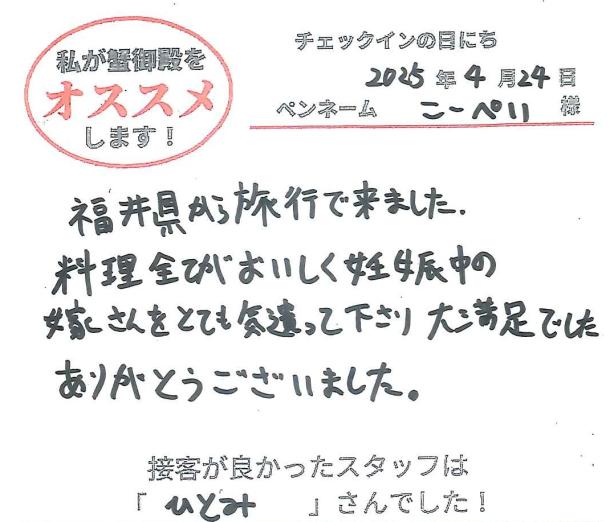 私が蟹御殿を
オススメ
します！
チェックインの日にち
2025年4月24日
ペンネーム こーぺい 様
福井県から旅行で来ました.
料理全てがおいしく妊娠中の
嫁さんをとても気遣って下さり 大満足でした
ありがとうございました。
接客が良かったスタッフは
「 ひとみ 」さんでした！